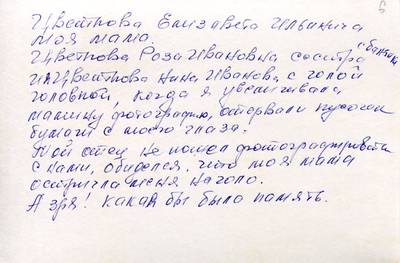 5
Цветкова Елизавета Ильинича
моя мама.
Цветкова Роза Ивановна состра с бантик
и Цветкова Нина Иванов. с голой
головной, когда я увеличивала
мамину фотографию, оторвали кусочек
бумаги с моего глаза.
Мой отец не пошел фотографироваться
с нами, обиделся, что моя мама
остригла меня наголо.
А зря! Какая бы была память.